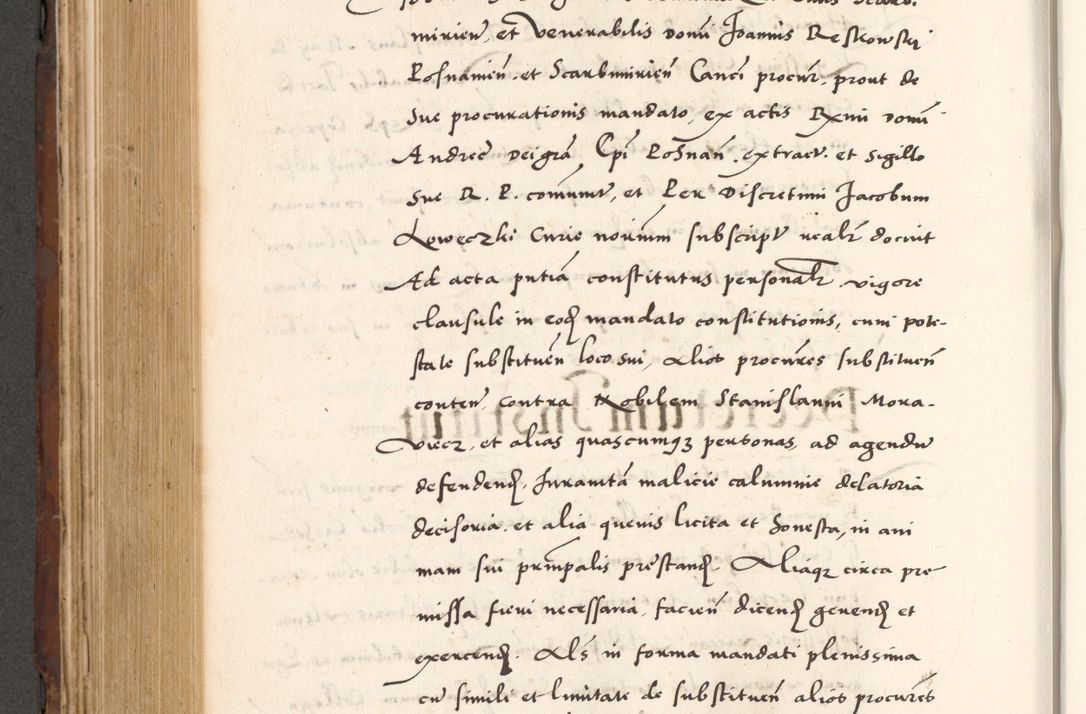 mirien, et Venerabilis domi Joannis Reskowski
Posnanien. et Scarbmirien Canci procur. prout de
sue procurationis mandato, ex actis Rxmi domi
Andree Dei gra Epi Posnan. extract. et sigillo
sue R. P. comunit, et Per Discretum Jacobum
Loweczki Curie norium subscript realr docuit
Ad acta putia constitutus personalr vigore
clausule in eod mandato constitutionis, cum pote-
state substituen loco sui, Alios procures substituen
conten, contra Nobilem Stanislaum Mora-
wiecz, et alias quascumq3 personas, ad agendu
defendend, Juramta malicie calumnie delatoria
decisoria, et alia quevis licita et honesta, in ani
mam sui principalis prestand. Aliaqz circa pre
missa fieri necessaria, facien dicend gerend et
exercend. Als in forma mandati plenissima
cu simili et limitate de substituen alios procures